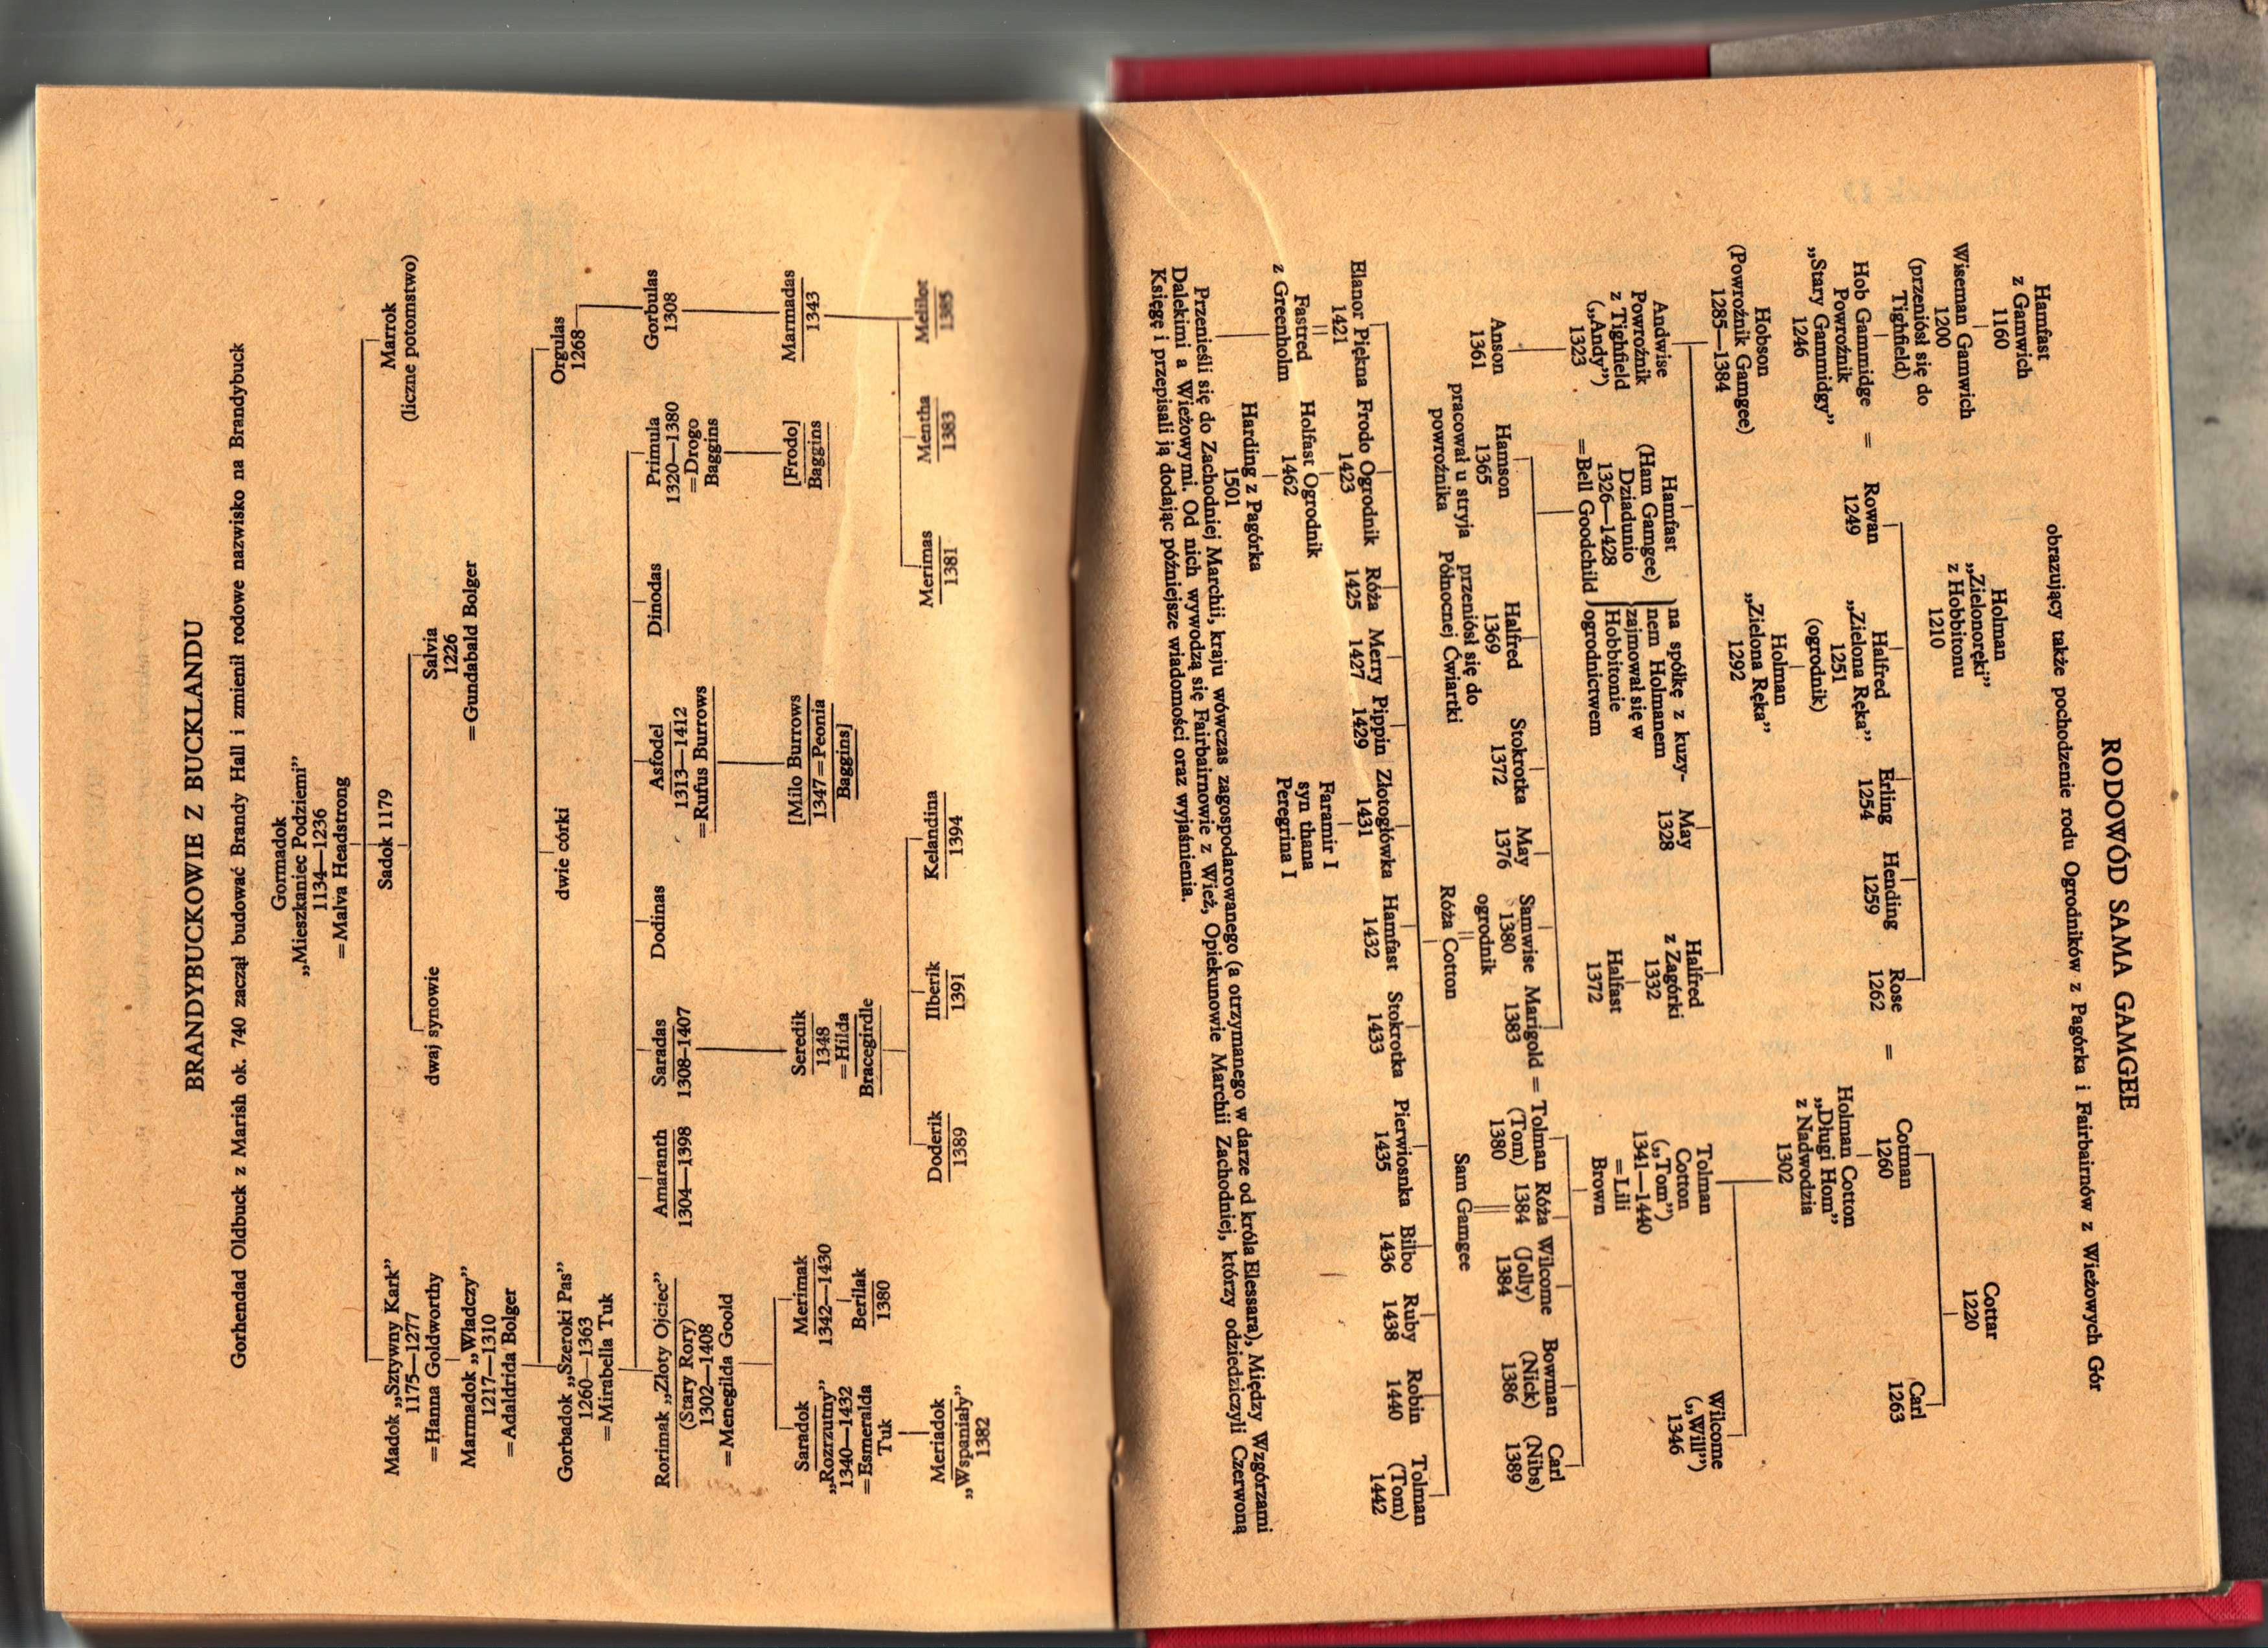 BRANDYBUCKOWIE Z BUCKLANDU
Gorhendad Oldbuck z Marish ok. 740 zaczął budować Brandy Hall i zmienił rodowe nazwisko na Brandybuck
Gormadok
„Mieszkaniec Podziemi”
1134—1236
=Malva Headstrong
Madok „Sztywny Kark”
1175—1277
=Hanna Goldworthy
Sadok 1179
Marrok
(liczne potomstwo)
dwaj synowie
Salvia
1226
=Gundabald Bolger
Marmadok „Władczy”
1217—1310
=Adaldrida Bolger
Gorbadok „Szeroki Pas”
1260—1363
=Mirabella Tuk
dwie córki
Orgulas
1268
Rorimak „Złoty Ojciec”
(Stary Rory)
1302—1408
=Menegilda Goold
Amaranth
1304—1398
Saradas
1308-1407
Dodinas
Asfodel
1313—1412
=Rufus Burrows
Dinodas
Primula
1320—1380
=Drogo
Baggins
Gorbulas
1308
Saradok
„Rozrzutny”
1340—1432
=Esmeralda
Tuk
Merimak
1342—1430
Berilak
1380
Seredik
1348
=Hilda
Bracegirdle
[Milo Burrows
1347=Peonia
Baggins]
[Frodo]
Baggins
Marmadas
1343
Meriadok
„Wspaniały”
1382
Doderik
1389
Ilberik
1391
Kelandina
1394
Merimas
1381
Mentha
1383
Melilot
1385
RODOWÓD SAMA GAMGEE
obrazujący także pochodzenie rodu Ogrodników z Pagórka i Fairbairnów z Wieżowych Gór
Hamfast
z Gamwich
1160
Wiseman Gamwich
1200
(przeniósł się do
Tighfield)
Hob Gammidge
Powroźnik
„Stary Gammidgy”
1246
=
Hobson
(Powroźnik Gamgee)
1285—1384
Holman
„Zielonoręki”
z Hobbitonu
1210
Rowan
1249
Halfred
„Zielona Ręka”
1251
(ogrodnik)
Erling
1254
Hending
1259
Rose
1262
=
Cottar
1220
Cotman
1260
Carl
1263
Holman
„Zielona Ręka”
1292
Holman Cotton
„Długi Hom”
z Nadwodzia
1302
Andwise
Powroźnik
z Tighfield
(„Andy”)
1323
Hamfast
(Ham Gamgee)
Dziadunio
1326—1428
=Bell Goodchild
na spółkę z kuzy-
nem Holmanem
zajmował się w
Hobbitonie
ogrodnictwem
May
1328
Halfred
z Zagórki
1332
Halfast
1372
Tolman
Cotton
(„Tom”)
1341—1440
=Lili
Brown
Wilcome
(„Will”)
1346
Anson
1361
Hamson
1365
pracował u stryja
powroźnika
Halfred
1369
przeniósł się do
Północnej Ćwiartki
Stokrotka
1372
May
1376
Samwise
1380
ogrodnik
=
Róża Cotton
Marigold = Tolman
1383
(Tom)
1380
Róża
1384
=
Sam Gamgee
Wilcome
(Jolly)
1384
Bowman
(Nick)
1386
Carl
(Nibs)
1389
Elanor Piękna
1421
=
Fastred
z Greenholm
Frodo Ogrodnik
1423
Holfast Ogrodnik
1462
Harding z Pagórka
1501
Róża
1425
Merry
1427
Pippin
1429
Złotogłówka
1431
Faramir I
syn thana
Peregrina I
Hamfast
1432
Stokrotka
1433
Pierwiosnka
1435
Bilbo
1436
Ruby
1438
Robin
1440
Tolman
(Tom)
1442
Przenieśli się do Zachodniej Marchii, kraju wówczas zagospodarowanego (a otrzymanego w darze od króla Elessara), Między Wzgórzami
Dalekimi a Wieżowymi. Od nich wywodzą się Fairbairnowie z Wież, Opiekunowie Marchii Zachodniej, którzy odziedziczyli Czerwoną
Księgę i przepisali ją dodając późniejsze wiadomości oraz wyjaśnienia.